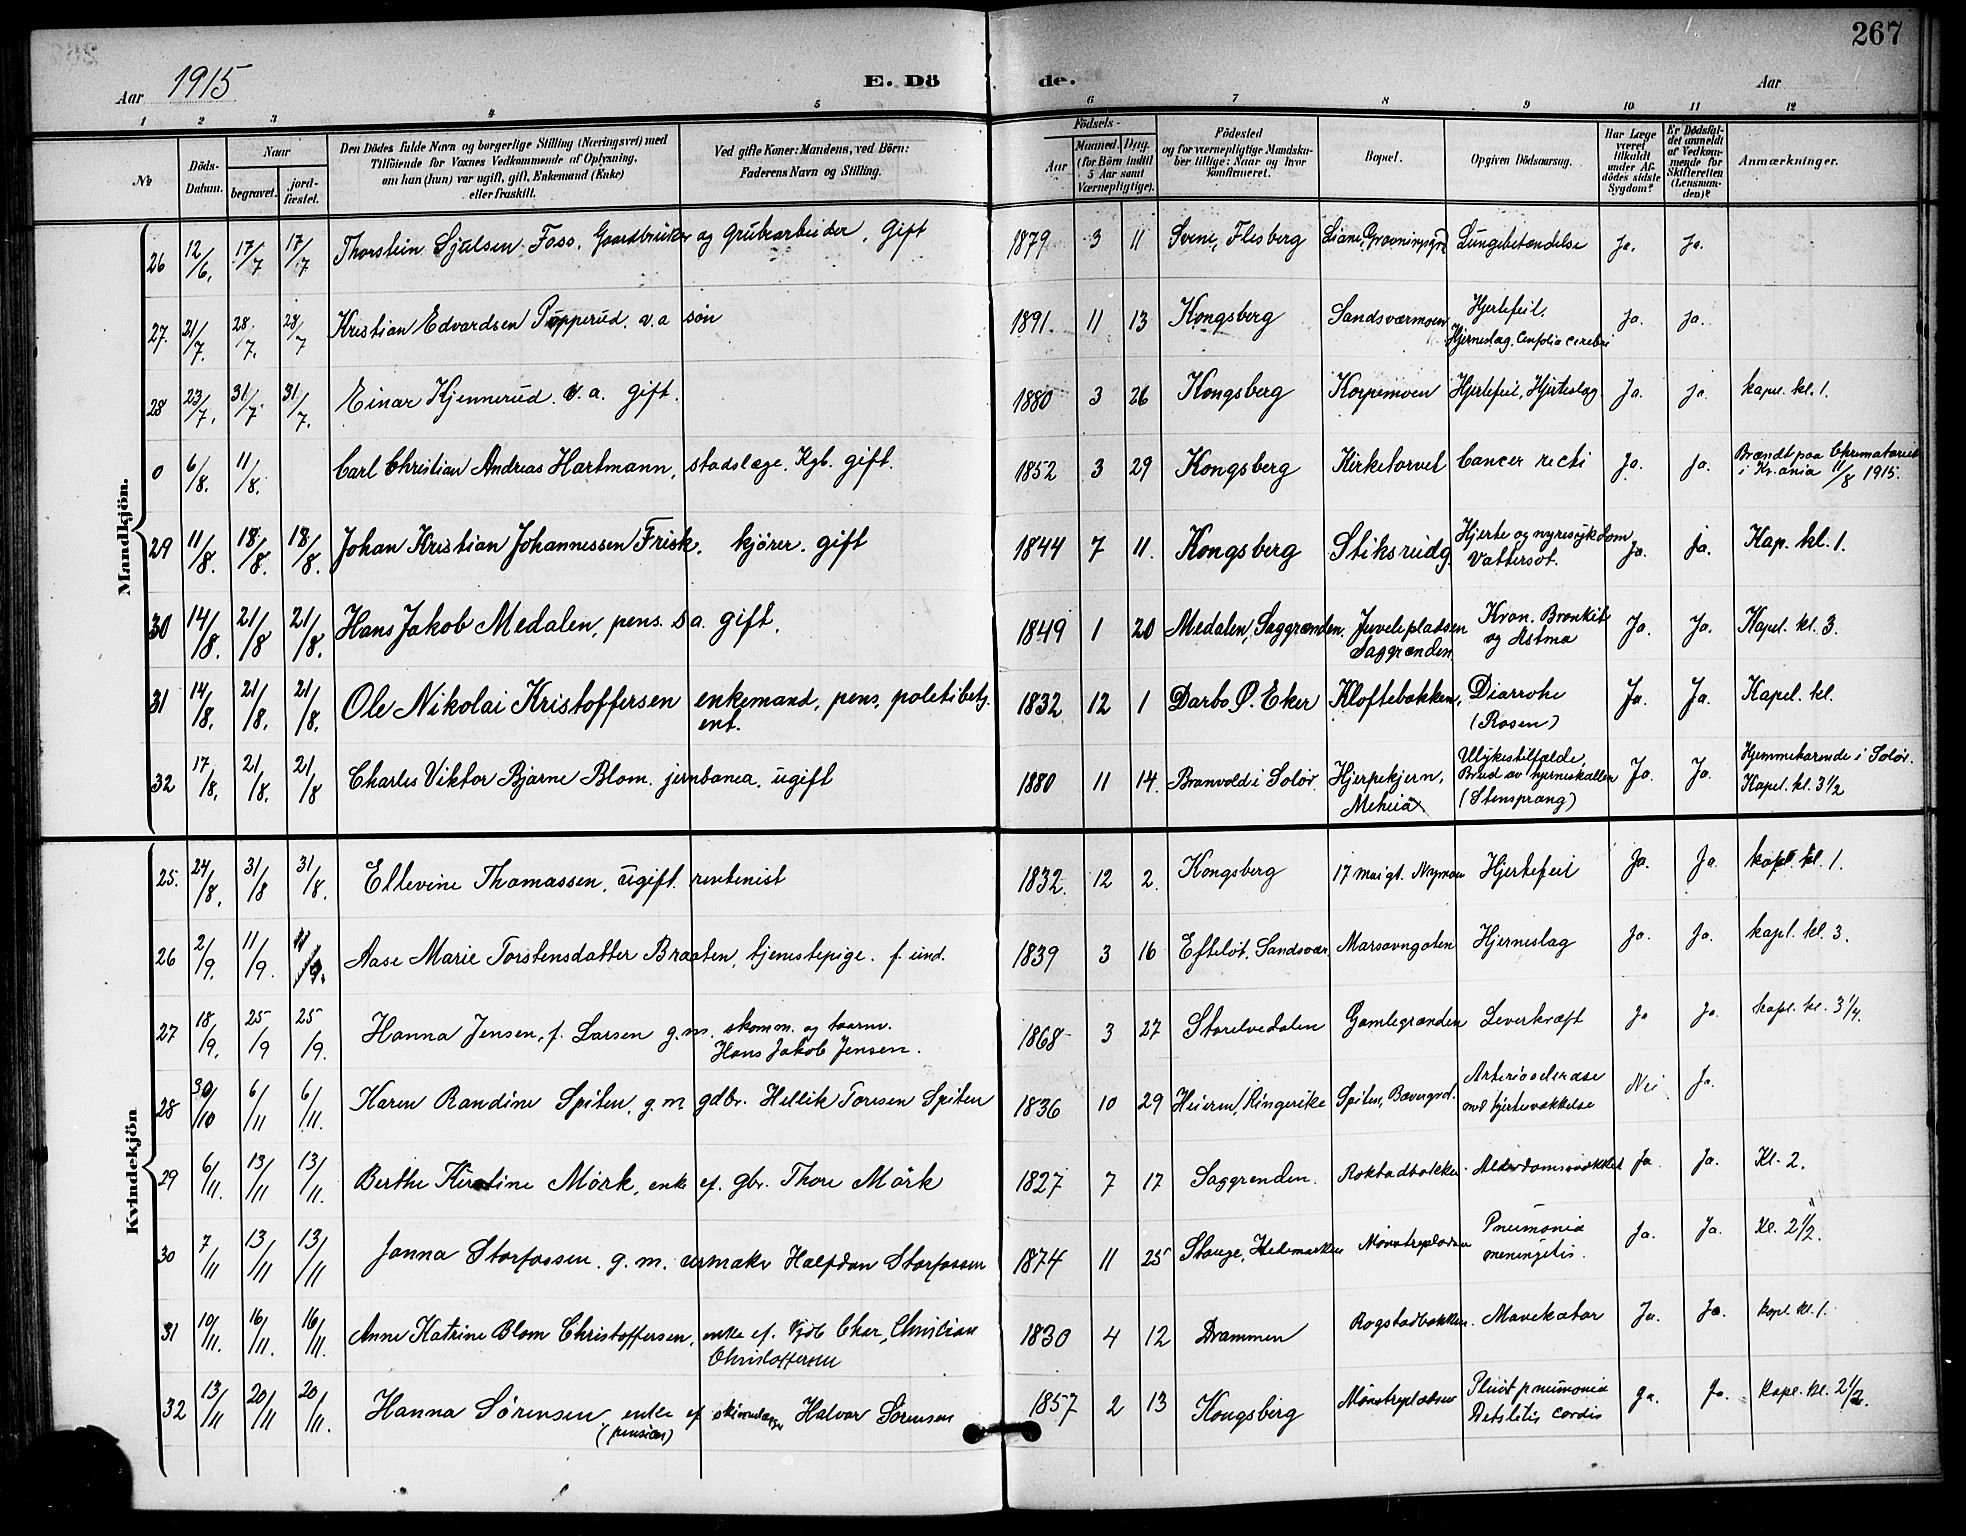 267
Aar 1915
E. Dö de.
Aar
1 2 3 4 5 6 7 8 9 10 11 12
№
Döds-Datum.
Naar
begravet.
jordfæstet.
Den Dödes fulde Navn og borgerlige Stilling (Næringsvei) med
Tilföiende for Voxnes Vedkommende af Oplysning,
om han (hun) var ugift, gift, Enkemand (Enke)
eller fraskilt.
Ved gifte Koner: Mandens, ved Börn:
Faderens Navn og Stilling.
Födsels-
Aar
Maaned. Dag.
(for Börn indtil
5 Aar samt
Værnepligtige).
Födested
og for værnepligtige Mandskaber tillige: Naar og hvor
konfirmeret.
Bopæl.
Opgiven Dödsaarsag.
Har Læge
været
tilkaldt
under Afdödes sidste
Sygdom?
Er Dödsfaldet anmeldt
af Vedkommende for
Skifteretten
(Lensmanden)?
Anmærkninger.
Mandkjön.
26 12/6. 17/7 17/7 Thorstein Sjulsen Foss, Gaardbruker og grubearbeider, Gift 1879 3 11 Svene, Flesberg Lungebetændelse Ja. Ja.
27. 21/7. 28/7. 28/7 Kristian Edvardsen Pupperud. v.a søn 1891. 11 13 Kongsberg Sandsværmoen Hjertefeil. Ja. Ja.
Hjerneslag.
28 23/7. 31/7. 31/7. Einar Kjennerud. v.a. gift. 1880 3 26 Kongsberg Korpemoen Hjertefeil, Hjerteslag Ja. Ja. kapel. kl. 1.
0 6/8. 11/8. Carl Christian Andreas Hartmann, stadslæge. Kgb. gift. 1852 3 29 Kongsberg Kirketorvet Cancer recti Ja. Ja. Brændt paa
i Kr.ania 11/8 1915.
29 11/8. 18/8. 18/8. Johan Kristian Johannessen Frisk. kjörer. gift 1844 7 11. Kongsberg Stiksrudg. Hjerte og nyresykdom Ja. Ja. Kap. kl. 1.
Vattersot.
30 14/8. 21/8 21/8. Hans Jakob Medalen, pens. s.a. gift. 1849 1 20 Medalen, Saggrenden. Juvelepladsen Kron. Bronkit Ja. Ja. Kapel. kl. 3.
Saggrenden og Astma
31 14/8. 21/8. 21/8. Ole Nikolai Kristoffersen enkemand, pens, poletibetj. 1832 12 1 Darbo Ø. Eker Kloftebakken, Diarrohe Ja. Ja. Kapel. kl.
ent. (Rosen)
32 17/8. 21/8. 21/8 Charles Viktor Bjarne Blom. jernbanea. ugift 1880 11 14. Branvold i Solör Hjerpekjern, Ulykestilfælde, Ja. Ja. Hjemmehørende i Solör.
Meheia Brud av hjerneskallen Kapel. kl. 3½
(Stensprang)
Kvindekjön
25. 24/8. 31/8 31/8. Ellevine Thomassen, ugift. rentenist 1832. 12 2. Kongsberg 17 mai gt. Nymoen Hjertefeil Ja. Ja. kapel. kl. 1.
26 2/9. 11/9. 11/9. Aase Marie Torstensdatter Braaten, tjenestepige. f. und. 1839 3 16 Efteløt. Sandsvær Hjerneslag Ja. Ja. kapl. kl. 3.
27 18/9. 25/9 25/9. Hanna Jensen, f. Larsen g.m. skom m. og taarnv. 1868 3 27 Storelvedalen Gamlegrænden Leverkræft Ja Ja. kapl. kl. 3¼.
Hans Jakob Jensen.
28 30/10 6/11 6/11. Karen Randine Spiten, g.m. gdbr. Hellik Toresen Spiten 1836 10 29 Heiern, Ringerike Spiten, Arterioselerose Nei Ja.
med hjertevækkelse
29 6/11. 13/11 13/11. Berthe Kirstine Mörk, enke ef. gbr. Thore Mörk 1827 7 17 Saggrenden. Rokstadbakken Ja. Ja. Kl. 2.
30 7/11 13/11 13/11 Janna Storfossen. g.m. urmaker Halfdan Storfossen 1874 11 25 Stange, Hedemarken Mönstrepladsen Pneumonia Ja. Ja. kl. 2½.
meningitis.
31 10/11. 16/11. 16/11. Anne Katrine Blom Christoffersen, enke ef. Christian 1830 4 12 Drammen Rogstadbakken. Mavekatar Ja. Ja. kapl. kl. 1.
Christoffersen
32 13/11 20/11 20/11. Hanna Sörensen enke ef Halvor Sörensen 1857 2 13 Kongsberg Mönstrepladsen pneumonia Ja. Ja. kapl. kl. 2½.
(pension) cordis